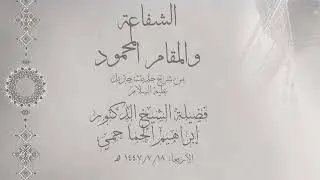 الشفاعة
والمقام المحمود
من شرح حديث جبريل
عليه السلام
فضيلة الشيخ الدكتور
إبراهيم الحماحمي
الأربعاء: ١٤٤٧/٧/١٨ هـ